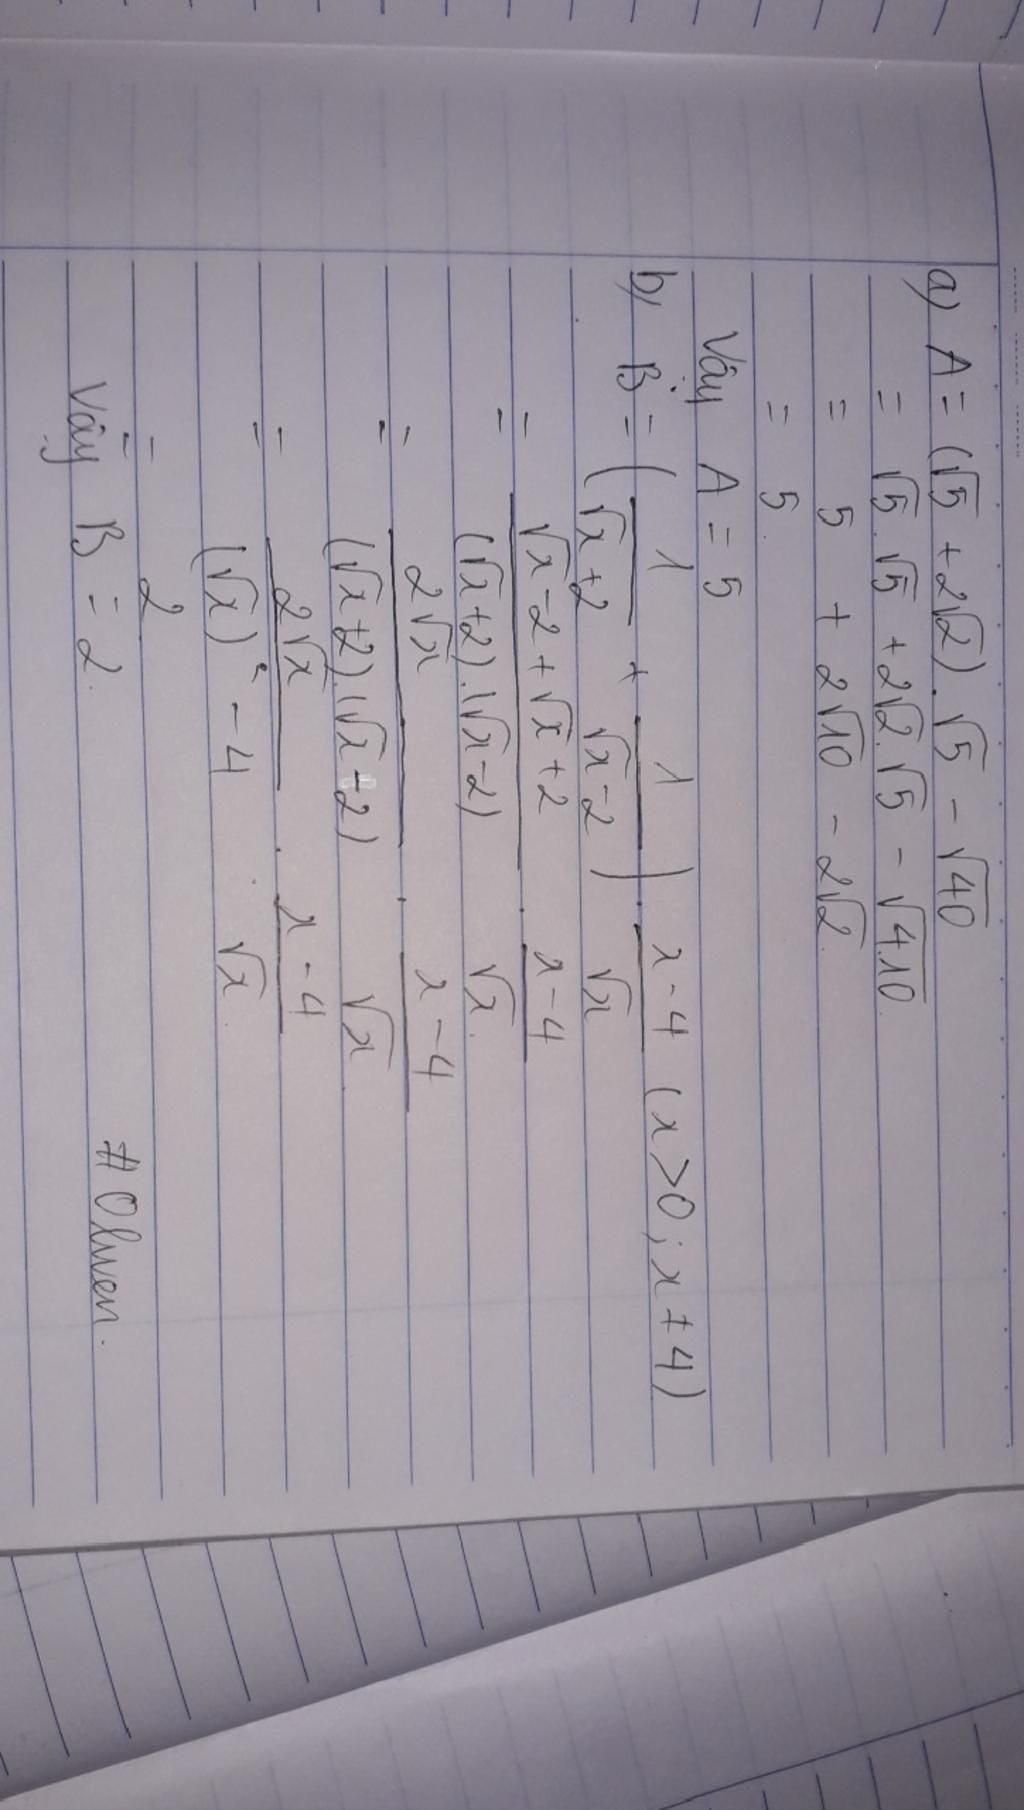 a) A = (√5 + 2√2).√5 - √40
= √5.√5 + 2√2.√5 - √4.10
= 5 + 2√10 - 2√2.
= 5
Vậy A = 5
b) B = (1/(√x+2) + 1/(√x-2)) . (x-4)/√x (x>0; x≠4)
= (√x-2+√x+2)/((√x+2).(√x-2)) . (x-4)/√x.
= 2√x/((√x+2).(√x-2)) . (x-4)/√x
= 2√x/((√x)² - 4) . (x-4)/√x
= 2
Vậy B = 2.
# Olwen.